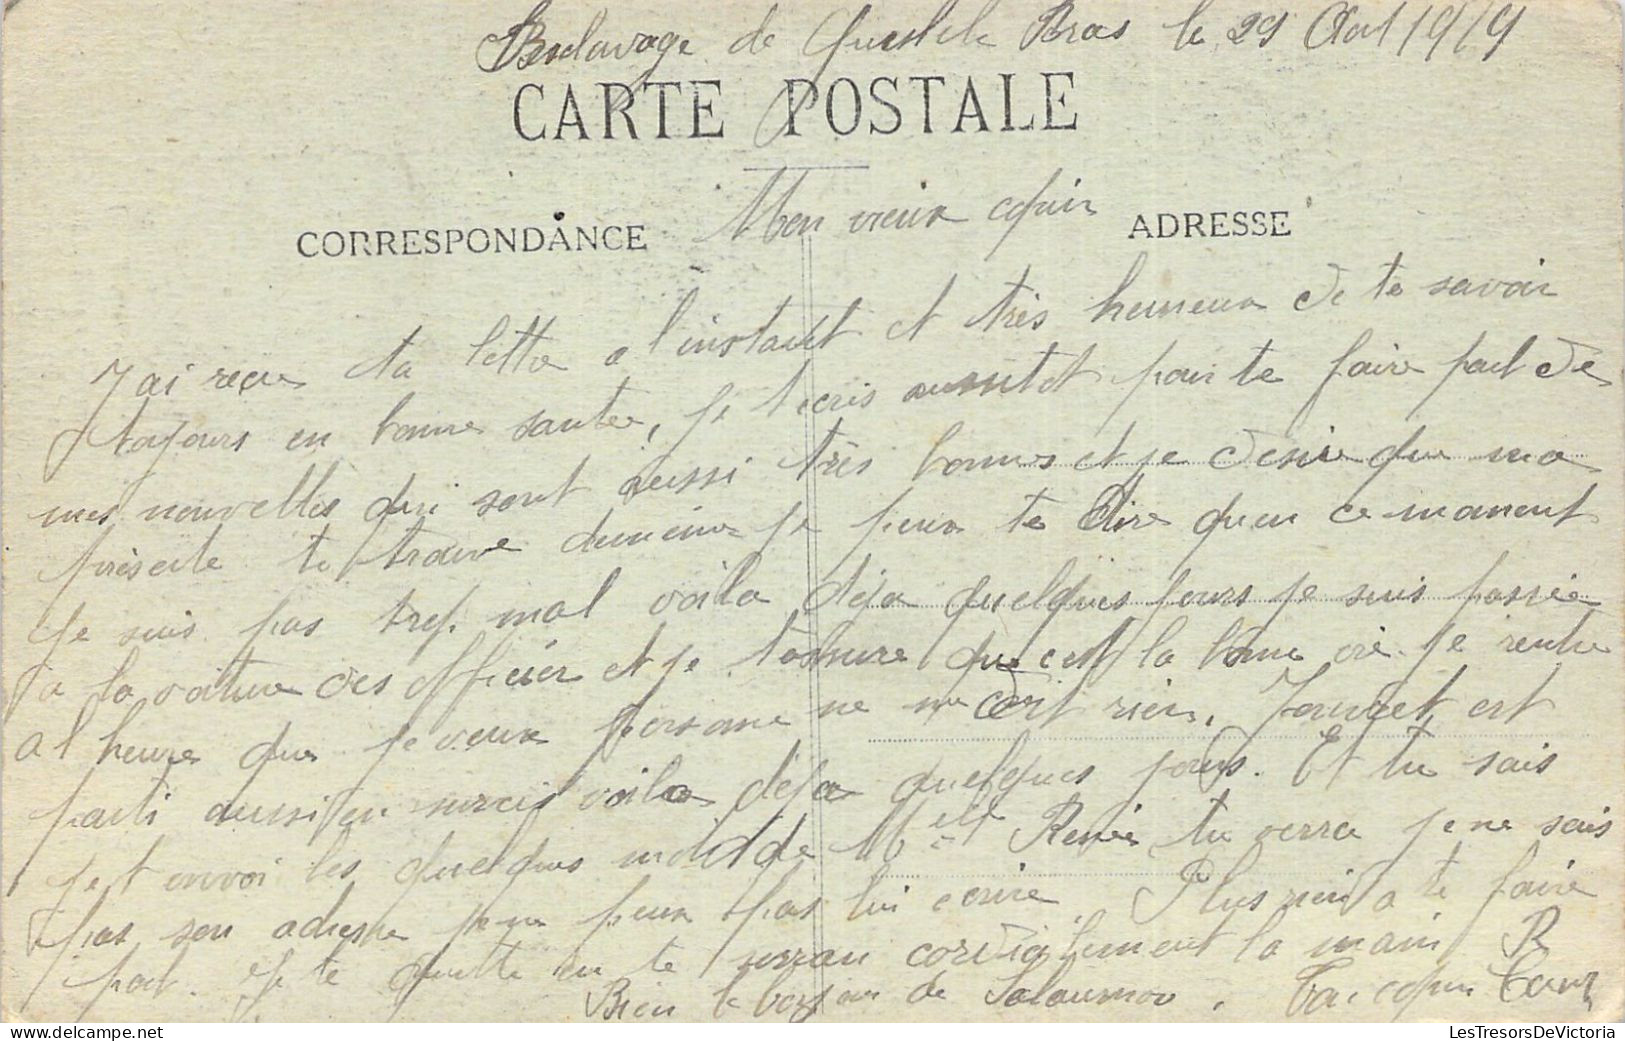 de le 29 Aout 1919
CARTE POSTALE
CORRESPONDANCE
Mon vieux copin
ADRESSE
J'ai reçue ta lettre a l'instant et très heureux de te savoir
toujours en bonne santée, je t'ecris aussitot pour te faire part de
mes nouvelles qui sont aussi très bonnes et je desire que ma
présente te trouve de meme je peux te dire qu'en ce moment
je suis pas trop mal voila déja quelques jours je suis passée
a la voiture des officier et je t'assure que c'est la bonne vie. je rentre
a l'heure que je veux persone ne me dit rien. est
parti aussi en voila déja quelques jours. Et tu sais
je t'envoi les quelques de Melle Renée tu verra je ne sais
pas son adresse je ne peux pas lui ecrire. Plus rien a te faire
part. Je te quitte en te serran cordialement la main
Bien le bonjour de . Ton copin
LesTresorsDeVictoria